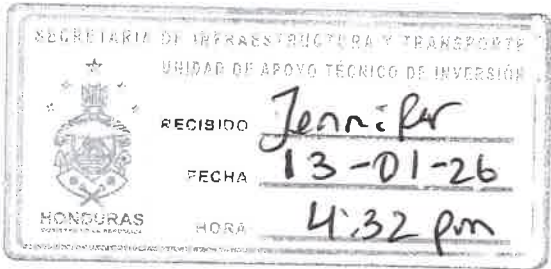 SECRETARIA DE INFRAESTRUCTURA Y TRANSPORTE
UNIDAD DE APOYO TÉCNICO DE INVERSIÓN
RECIBIDO Jennifer
FECHA 13-01-26
HORA 4:32 pm
HONDURAS